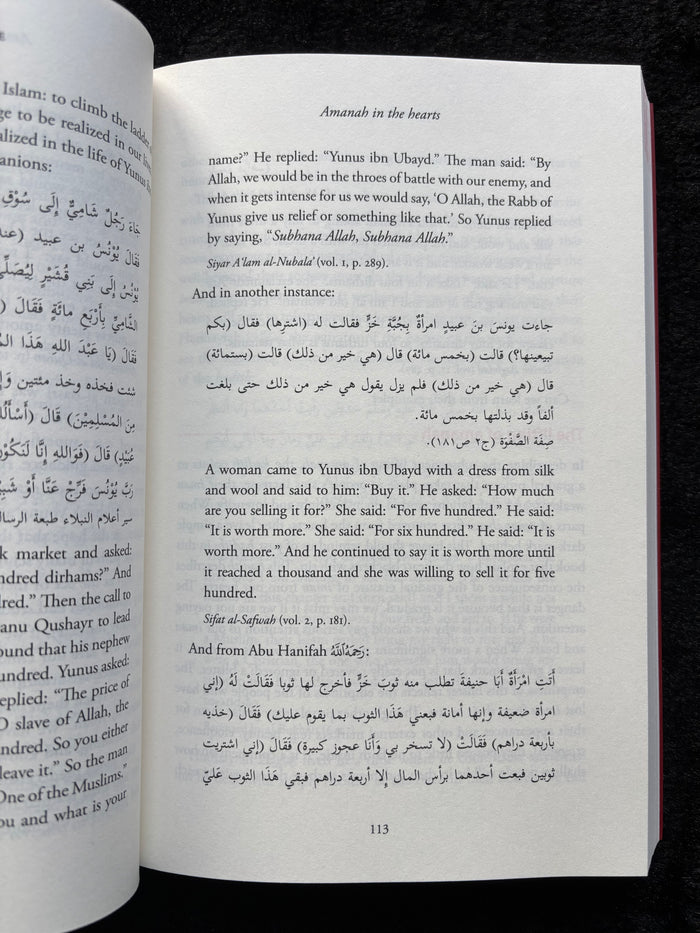 Islam: to climb the ladder
ge to be realized in our
alized in the life of Yunus
anions:
جَاءَ رَجُلٌ شَامِيٌّ إِلَى سُوْقِ
فَقَالَ يُوْنُسُ بن عبيد
يُوْنُسُ إِلَى بَنِي قُشَيْرٍ لِيُصَلِّيَ
الشَّامِيِّ بِأَرْبَعِ مائَةٍ فَقَالَ
فَقَالَ (يَا عَبْدَ اللهِ هَذَا
شئت فخذه وخذ مئتين
مِنَ المُسْلِمِيْنَ) قَالَ (أَسْأَلُكَ
عُبَيْدٍ) قَالَ (فَوَاللهِ إِنَّا لَنَكُوْنُ
رَبَّ يُوْنُسَ فَرِّجْ عَنَّا أَوْ
سير أعلام النبلاء طبعة الرسالة
k market and asked:
ndred dirhams?” And
dred.” Then the call to
anu Qushayr to lead
ound that his nephew
undred. Yunus asked:
replied: “The price of
O slave of Allah, the
undred. So you either
leave it.” So the man
“One of the Muslims.”
ou and what is your
Amanah in the hearts
name?” He replied: “Yunus ibn Ubayd.” The man said: “By
Allah, we would be in the throes of battle with our enemy, and
when it gets intense for us we would say, ‘O Allah, the Rabb of
Yunus give us relief or something like that.’ So Yunus replied
by saying, “Subhana Allah, Subhana Allah.”
Siyar A‘lam al-Nubala’ (vol. 1, p. 289).
And in another instance:
جاءت يونسَ بنَ عبيدٍ امرأةٌ بِجُبَّةِ خَزٍّ فقالت له (اشترها) فقال (بكم
تبيعينها؟) قالت (بخمس مائة) قال (هي خير من ذلك) قالت (بستمائة)
قال (هي خير من ذلك) فلم يزل يقول هي خير من ذلك حتى بلغت
ألفاً وقد بذلتها بخمس مائة.
صِفَة الصَّفْوَة (ج٢ ص١٨١).
A woman came to Yunus ibn Ubayd with a dress from silk
and wool and said to him: “Buy it.” He asked: “How much
are you selling it for?” She said: “For five hundred.” He said:
“It is worth more.” She said: “For six hundred.” He said: “It is
worth more.” And he continued to say it is worth more until
it reached a thousand and she was willing to sell it for five
hundred.
Sifat al-Safwah (vol. 2, p. 181).
And from Abu Hanifah رَحِمَهُ ٱللَّهُ:
أَتَتِ امْرَأَةٌ أَبَا حنيفةَ تطلب منه ثوبَ خَزٍّ فأخرج لها ثوبا فَقَالَتْ لَهُ (إني
امرأة ضعيفة وإنها أمانة فبعني هَذَا الثوب بما يقوم عليك) فَقَالَ (خذيه
بأربعة دراهم) فَقَالَتْ (لا تسخر بي وَأَنَا عجوز كبيرة) فَقَالَ (إني اشتريت
ثوبين فبعت أحدهما برأس المال إلا أربعة دراهم فبقي هَذَا الثوب عَليّ
113